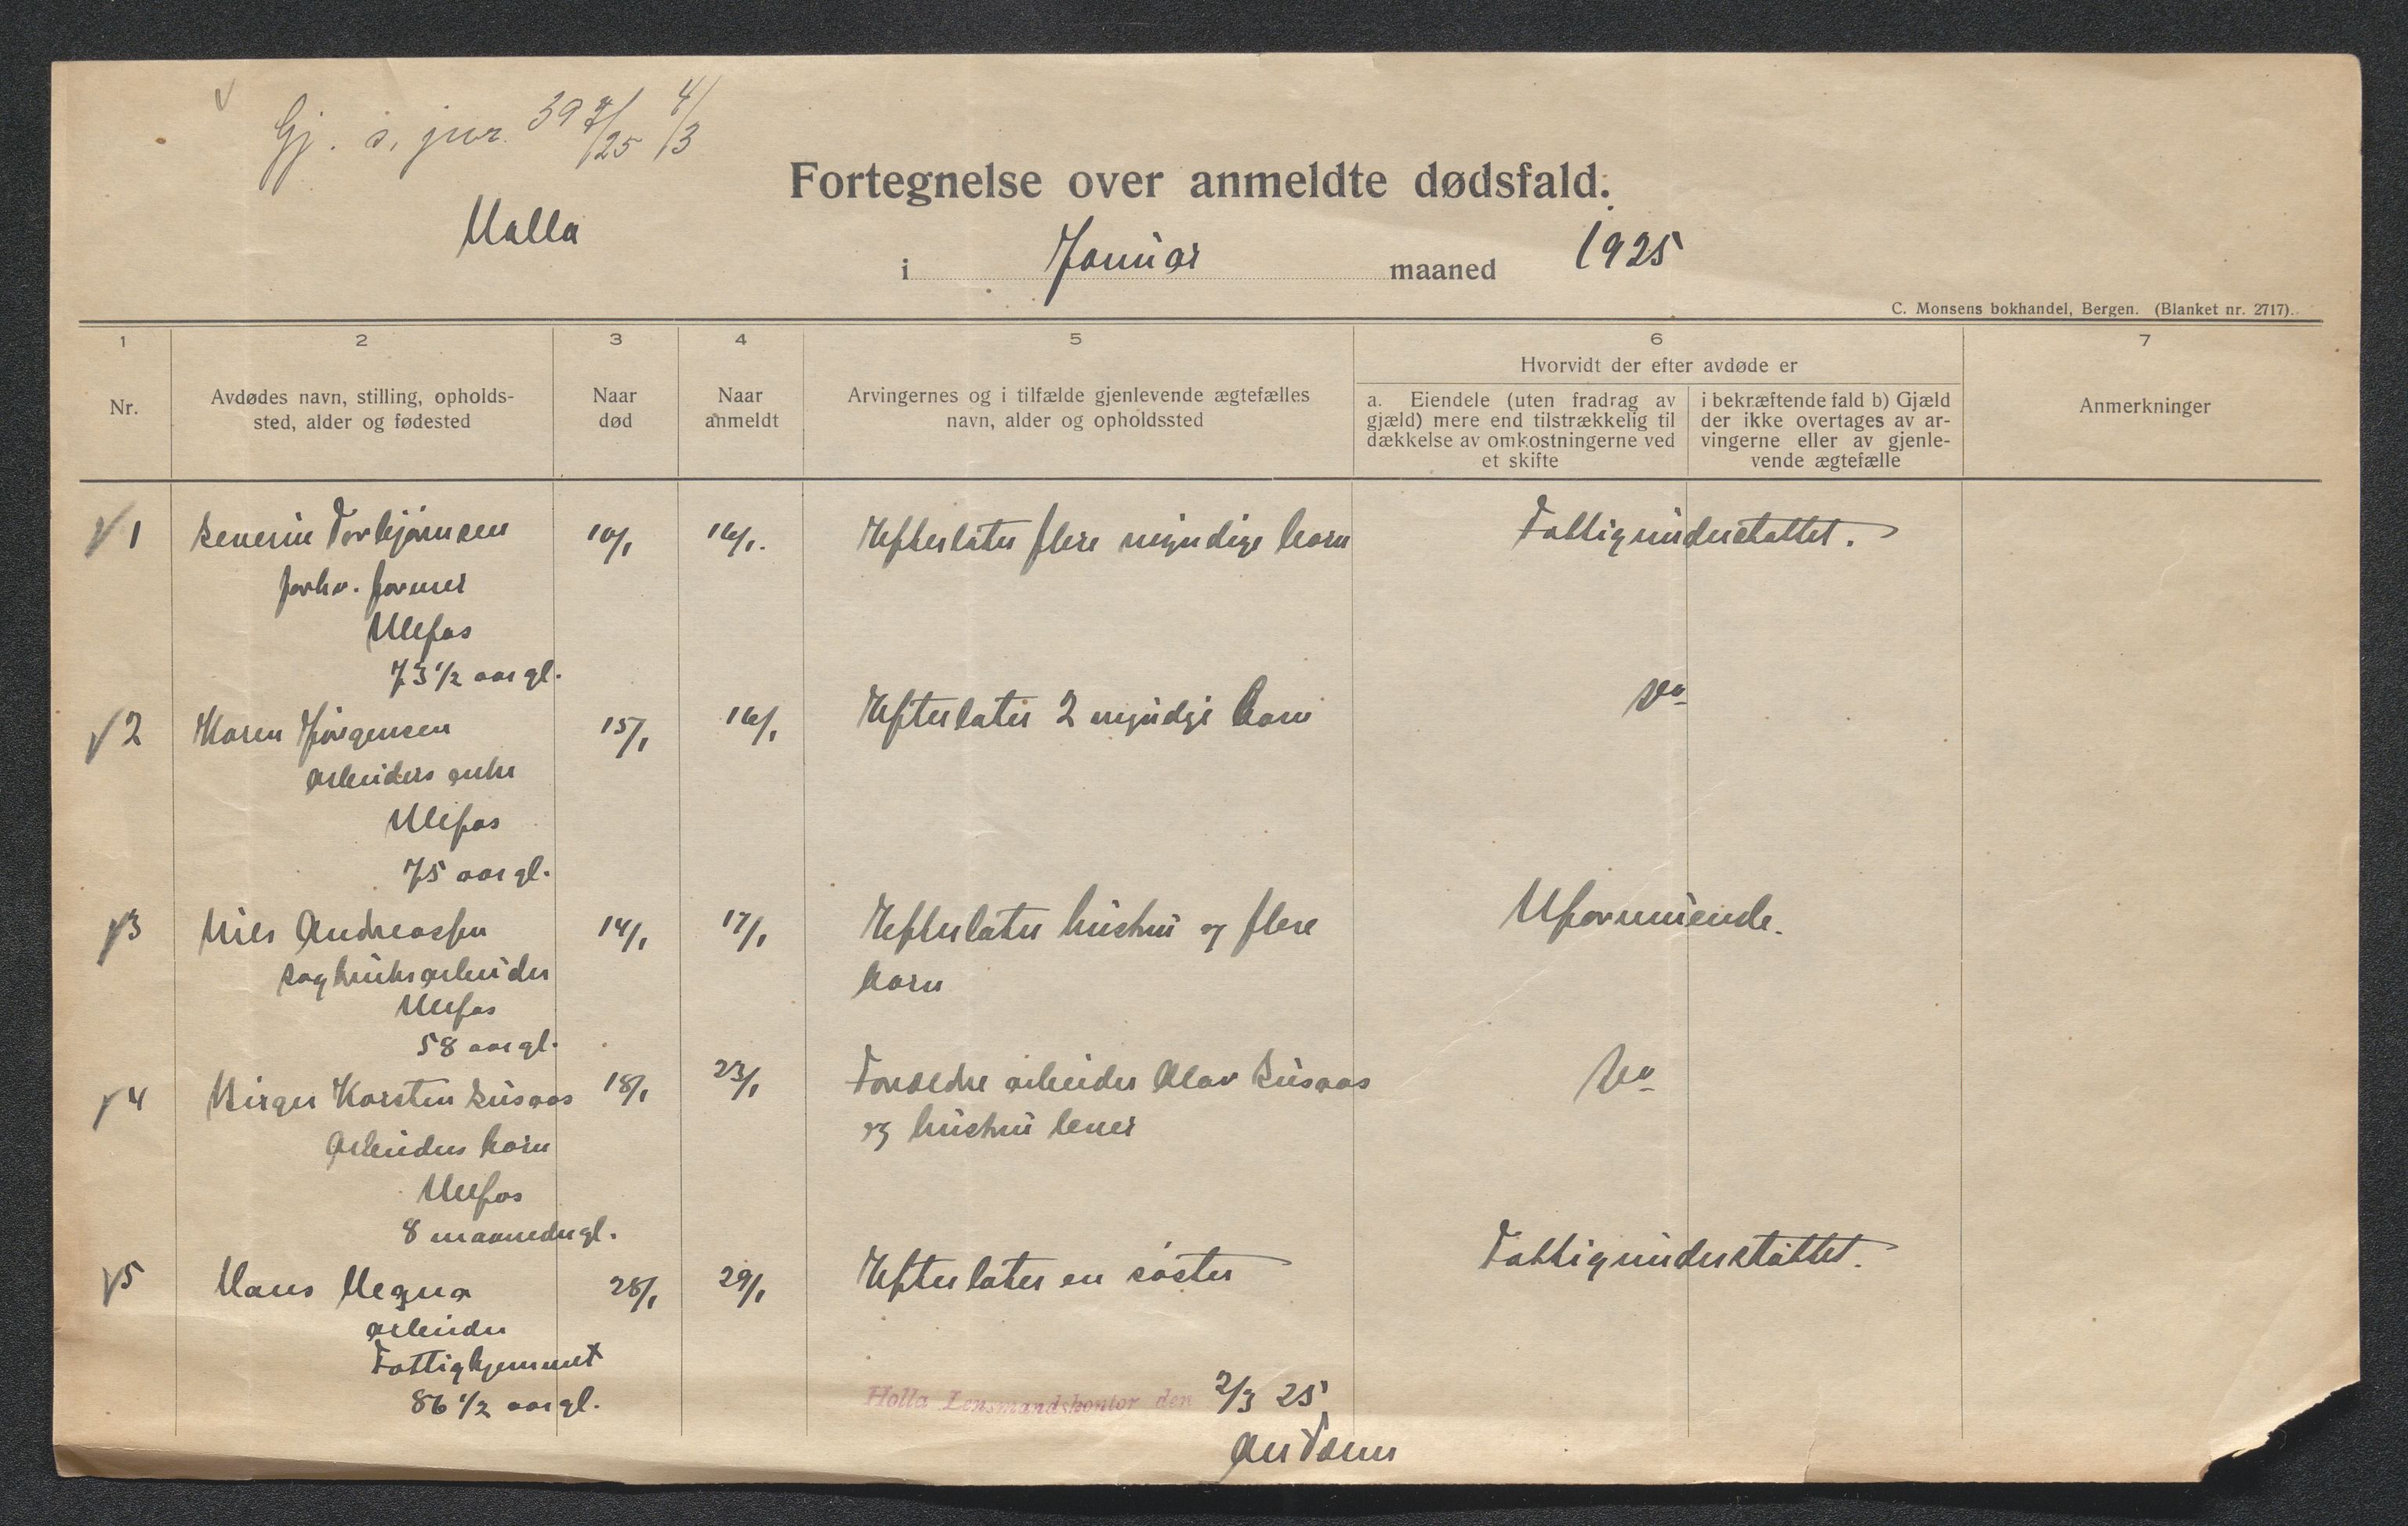 Gj. s. jur. 397/25 4/3
Holla
Fortegnelse over anmeldte dødsfald.
i Januar maaned 1925
C. Monsens bokhandel, Bergen. (Blanket nr. 2717).
1 2 3 4 5 6 7
Hvorvidt der efter avdøde er
Nr.
Avdødes navn, stilling, opholds-
sted, alder og fødested
Naar
død
Naar
anmeldt
Arvingernes og i tilfælde gjenlevende ægtefælles
navn, alder og opholdssted
a. Eiendele (uten fradrag av
gjæld) mere end tilstrækkelig til
dækkelse av omkostningerne ved
et skifte
i bekræftende fald b) Gjæld
der ikke overtages av ar-
vingerne eller av gjenle-
vende ægtefælle
Anmerkninger
1 Severin Torbjørnsen 10/1 16/1. Efterlater flere myndige barn Fattigunderstøttet.
forhv. former
Ulefos
73 1/2 aar gl.
2 Karen Jørgensen 15/1 16/1 Efterlater 2 myndige barn Do
arbeiders enke
Ulefos
75 aar gl.
3 Nils Andreassen 14/1 17/1 Efterlater hustru og flere Uformuende.
sagbruksarbeider barn
Ulefos
58 aar gl.
4 Birger Karsten Susaas 18/1 23/1 Forældre arbeider Olav Susaas Do
Arbeiders barn og hustru lever
Ulefos
8 maaneder gl.
5 Hans Hegna 28/1 29/1 Efterlater en søster Fattigunderstøttet.
arbeider
Fattighjemmet
86 1/2 aar gl.
Holla Lensmandskontor den 2/3 25